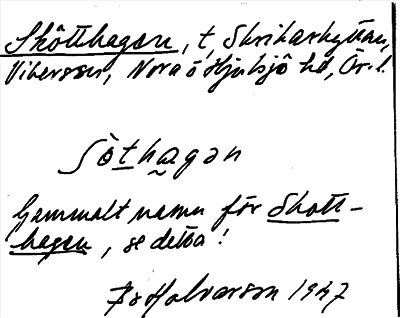 Skötthagen, t, Skrikarhyttan,
Vikersvn, Nora o Hjulsjö hd, Ör. l.
ʃö̀t̲hagən
Gammalt namn för Skott-
hagen, se detta!
Is Halvarson 1947